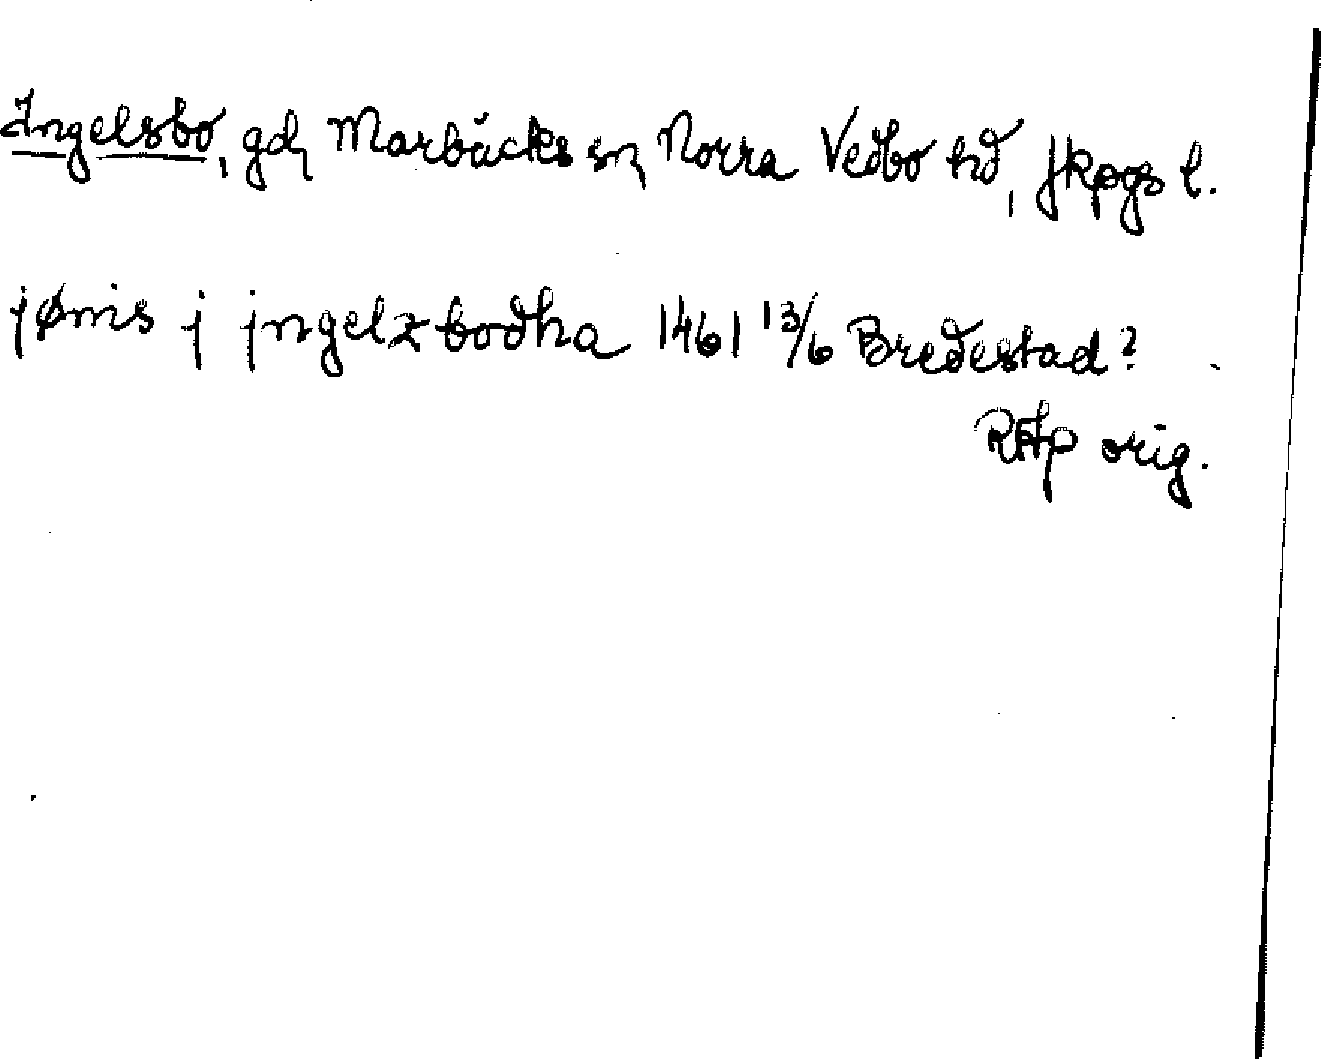 Ingelsbo, gd, Marbäcks sn, Norra Vedbo hd, Jkpgs l.
jønis j jngelzbodha 1461 13/6 Bredestad?
RAp orig.